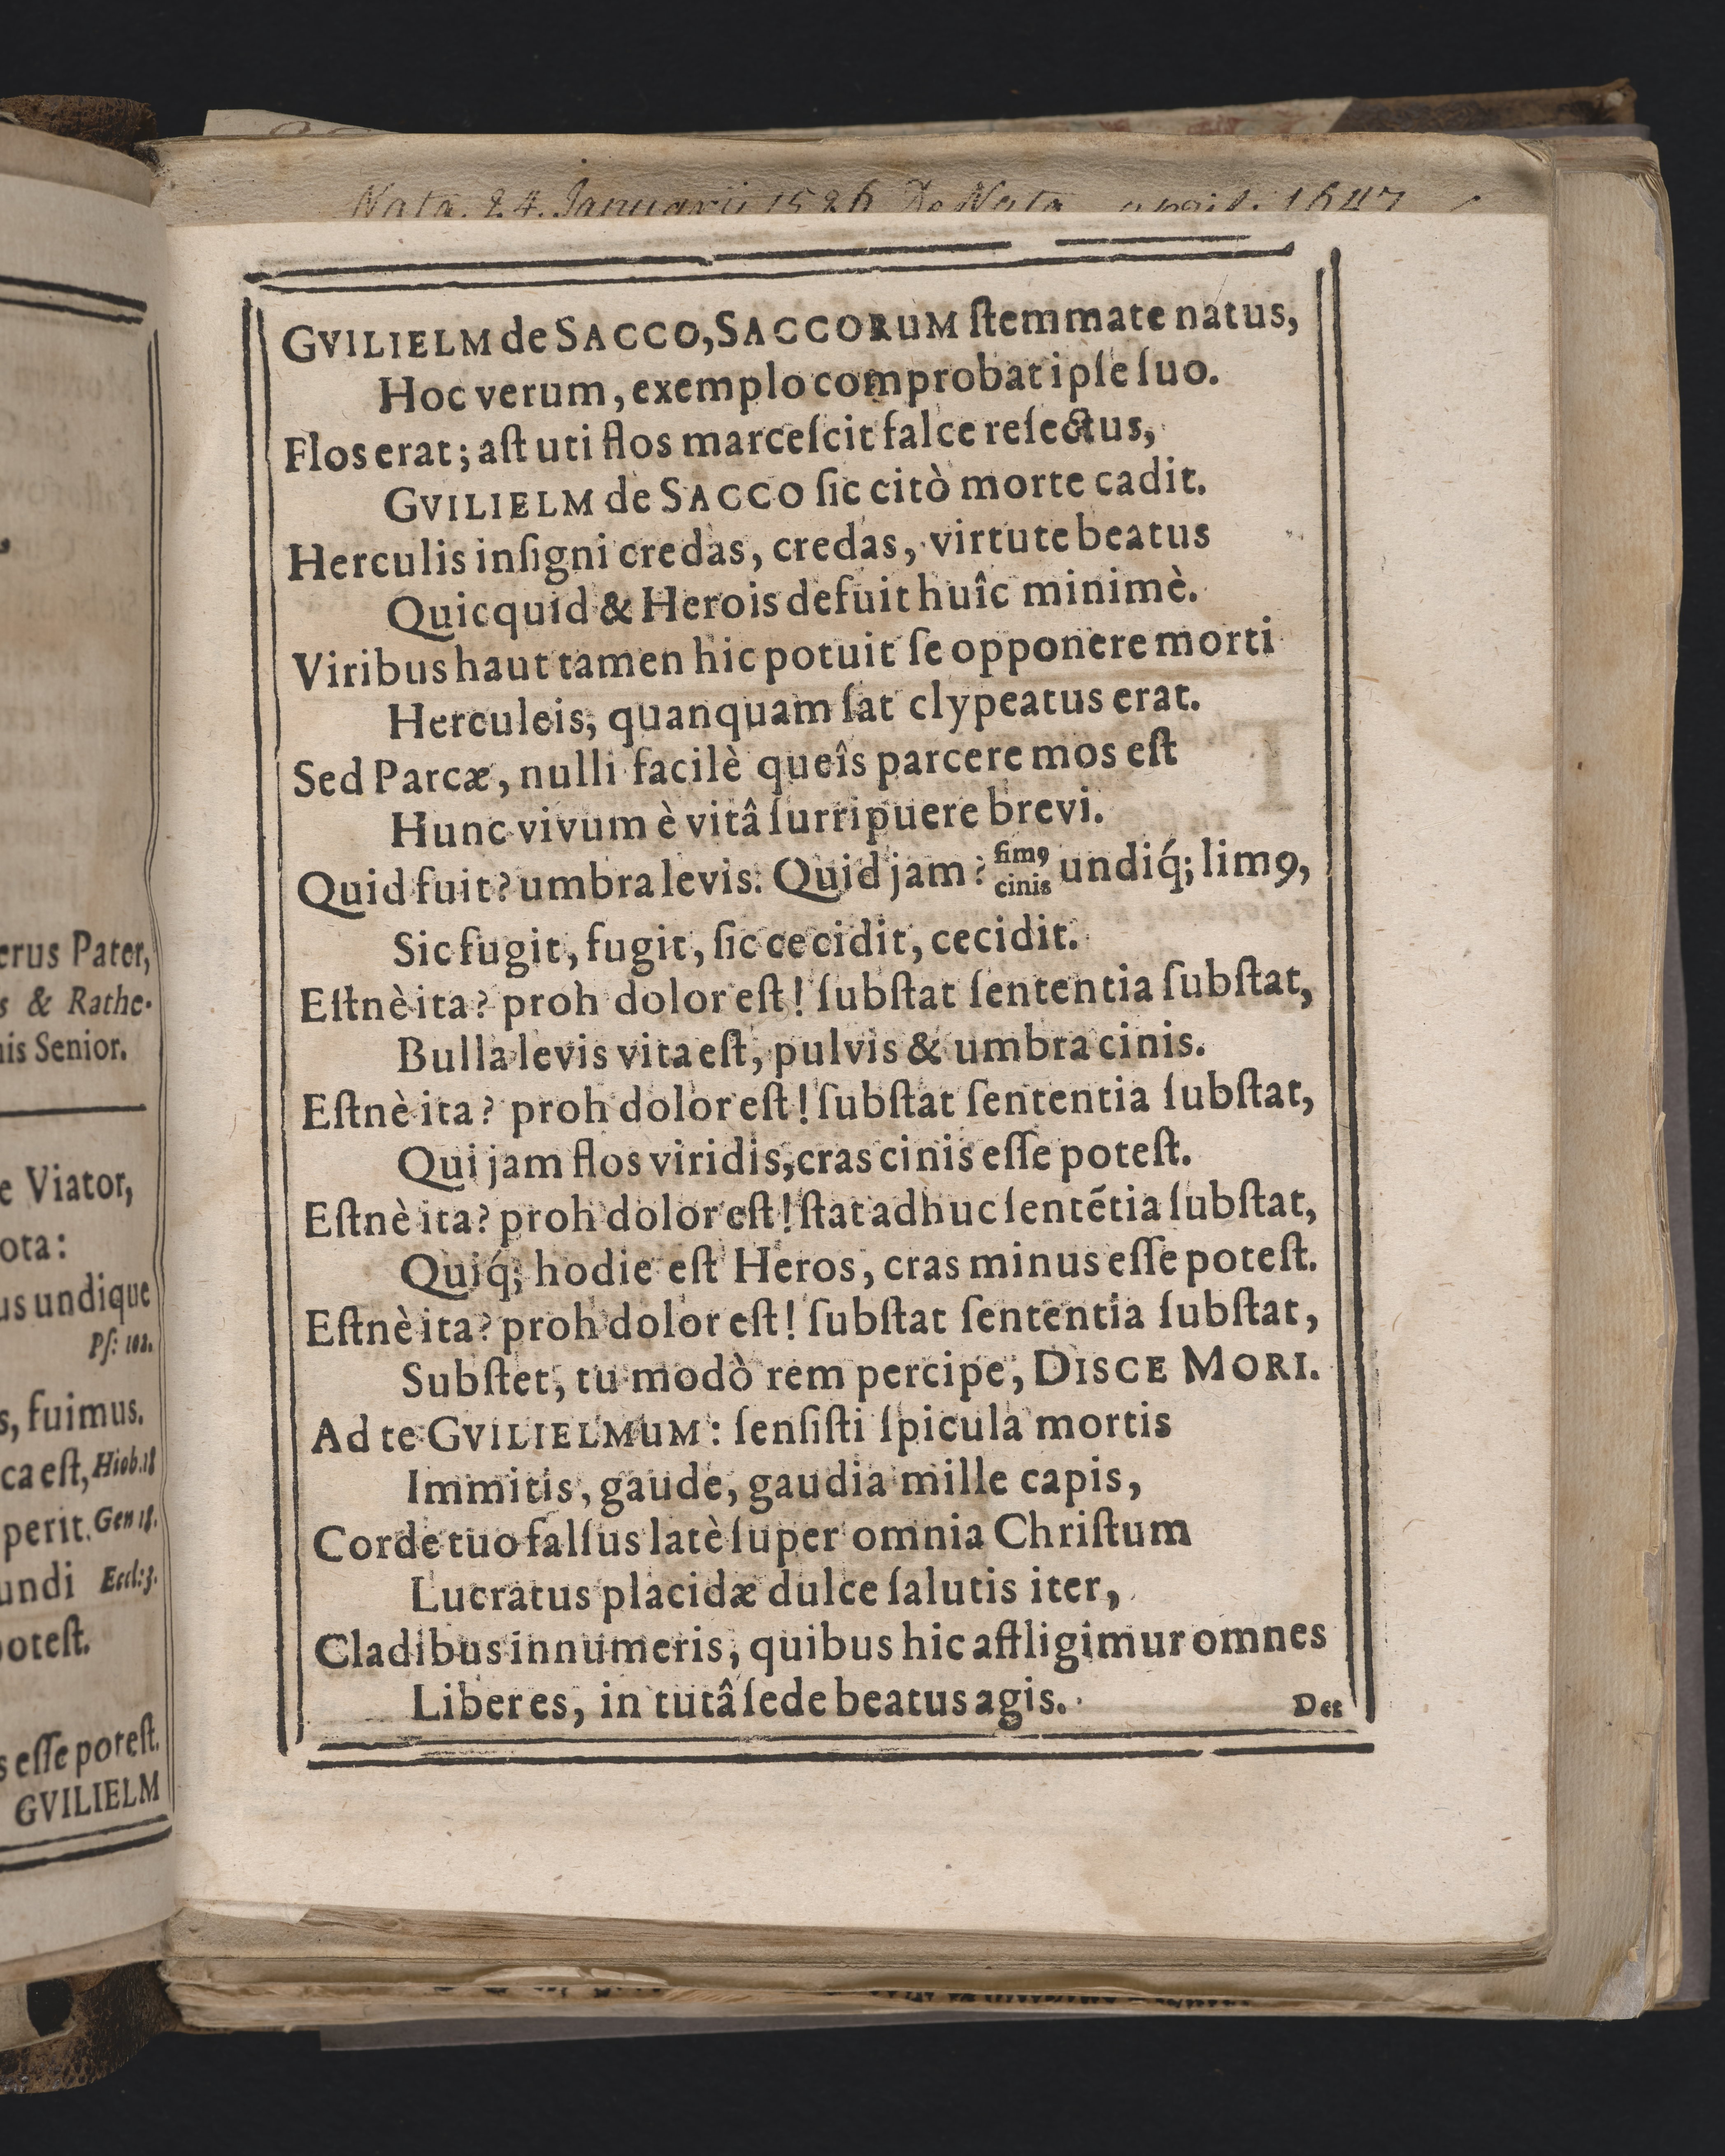 Nata. 24. Januarii 1526 De Nata 1647
erus Pater,
s & Rathe-
nis Senior.
e Viator,
ota:
us undique
Pſ: 102.
s, fuimus.
ca eſt, Hiob. 18
perit. Gen 18.
undi Eccl: 3.
poteſt.
s eſſe poteſt.
GVILIELM
GVILIELM de SACCO, SACCORuM ſtemmate natus,
Hoc verum, exemplo comprobat ipſe ſuo.
Flos erat; aſt uti flos marceſcit falce reſectus,
GVILIELM de SACCO ſic citò morte cadit.
Herculis inſigni credas, credas, virtute beatus
Quicquid & Herois defuit huîc minimè.
Viribus haut tamen hic potuit ſe opponere morti
Herculeis, quanquam ſat clypeatus erat.
Sed Parcæ, nulli facilè queîs parcere mos eſt
Hunc vivum è vitâ ſurripuere brevi.
Quid fuit? umbra levis. Quid jam? fimꝯ cinis undiq́; limꝯ,
Sic fugit, fugit, ſic cecidit, cecidit.
Eſtnè ita? proh dolor eſt! ſubſtat ſententia ſubſtat,
Bulla levis vita eſt, pulvis & umbra cinis.
Eſtnè ita? proh dolor eſt! ſubſtat ſententia ſubſtat,
Qui jam flos viridis, cras cinis eſſe poteſt.
Eſtnè ita? proh dolor eſt! ſtat adhuc ſentẽtia ſubſtat,
Quiq́; hodie eſt Heros, cras minus eſſe poteſt.
Eſtnè ita? proh dolor eſt! ſubſtat ſententia ſubſtat,
Subſtet, tu modò rem percipe, DISCE MORI.
Ad te GVILIELMuM: ſenſiſti ſpicula mortis
Immitis, gaude, gaudia mille capis,
Corde tuo falſus latè ſuper omnia Chriſtum
Lucratus placidæ dulce ſalutis iter,
Cladibus innumeris, quibus hic affligimur omnes
Liberes, in tutâ ſede beatus agis.
Det